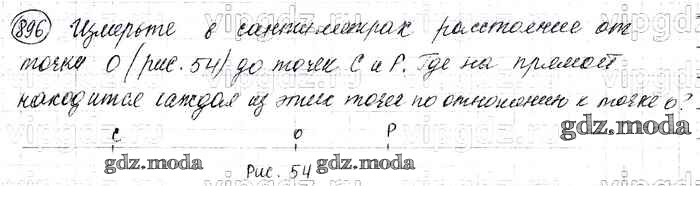 896 Измерьте в сантиметрах расстояние от
точки О (рис. 54) до точек С и Р. Где на прямой
находится каждая из этих точек по отношению к точке О?
С О Р
gdz.moda
gdz.moda gdz.moda
Рис. 54